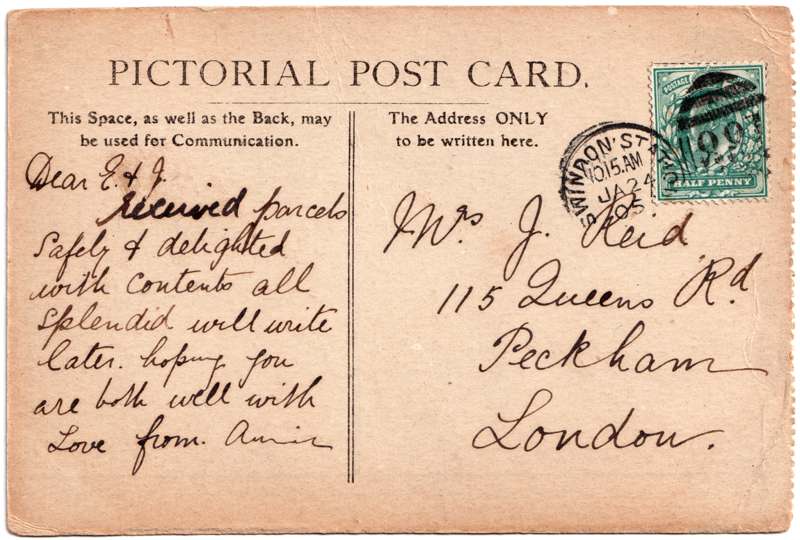 PICTORIAL POST CARD.
This Space, as well as the Back, may
be used for Communication.
Dear E. & J.
received parcels
safely & delighted
with contents all
splendid will write
later. hoping you
are both well with
Love from. Annie
The Address ONLY
to be written here.
Mrs J. Reid
115 Queens Rd
Peckham
London.
SWINDON·STATION
10.15.AM
JA 24
05
POSTAGE
HALF PENNY